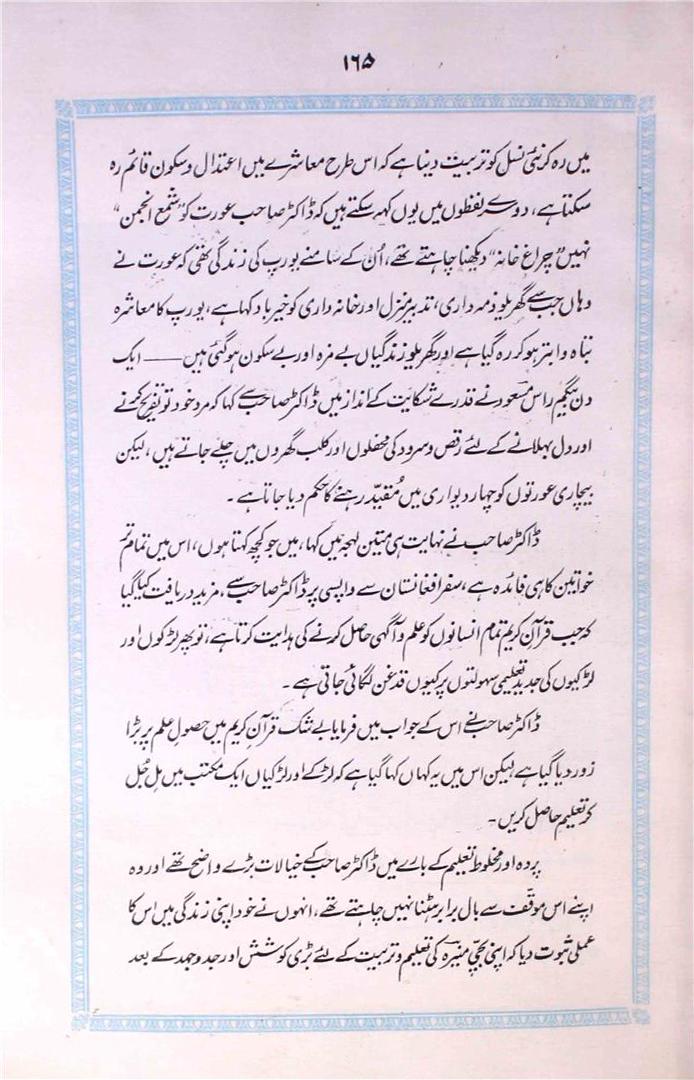 ۱۶۵
میں رہ کر نئی نسل کو تربیت دینا ہے کہ اس طرح معاشرے میں اعتدال و سکون قائم رہ
سکتا ہے، دوسرے لفظوں میں یوں کہہ سکتے ہیں کہ ڈاکٹر صاحب عورت کو "شمع انجمن"
نہیں "چراغ خانہ" دیکھنا چاہتے تھے، اُن کے سامنے یورپ کی زندگی تھی کہ عورت نے
وہاں جب سے گھریلو ذمہ داری، تدبیر منزل اور خانہ داری کو خیر باد کہا ہے، یورپ کا معاشرہ
تباہ و ابتر ہو کر رہ گیا ہے اور گھریلو زندگیاں بے مزہ اور بے سکون ہو گئی ہیں —— ایک
دن بیگم راس مسعود نے قدرے شکایت کے انداز میں ڈاکٹر صاحب سے کہا کہ مرد خود تو تفریح کرنے
اور دل بہلانے کے لئے رقص و سرود کی محفلوں اور کلب گھروں میں چلے جاتے ہیں، لیکن
بیچاری عورتوں کو چہار دیواری میں مُقیّد رہنے کا حکم دیا جاتا ہے۔
ڈاکٹر صاحب نے نہایت ہی متین لہجہ میں کہا، میں جو کچھ کہتا ہوں، اس میں تمام تر
خواتین کا ہی فائدہ ہے، سفر افغانستان سے واپسی پر ڈاکٹر صاحب سے، مزید دریافت کیا گیا
کہ جب قرآن کریم تمام انسانوں کو علم و آگہی حاصل کرنے کی ہدایت کرتا ہے، تو پھر لڑکوں اور
لڑکیوں کی جدید تعلیمی سہولتوں پر کیوں قدغن لگائی جاتی ہے۔
ڈاکٹر صاحب نے اس کے جواب میں فرمایا بے شک قرآن کریم میں حصولِ علم پر بڑا
زور دیا گیا ہے لیکن اس میں یہ کہاں کہا گیا ہے کہ لڑکے اور لڑکیاں ایک مکتب میں مِل جُل
کر تعلیم حاصل کریں۔
پردہ اور مخلوط تعلیم کے بارے میں ڈاکٹر صاحب کے خیالات بڑے واضح تھے اور وہ
اپنے اس موقّف سے بال برابر ہٹنا نہیں چاہتے تھے، انہوں نے خود اپنی زندگی میں اس کا
عملی ثبوت دیا کہ اپنی بچّی منیرہ کی تعلیم و تربیت کے لئے بڑی کوشش اور جدوجہد کے بعد